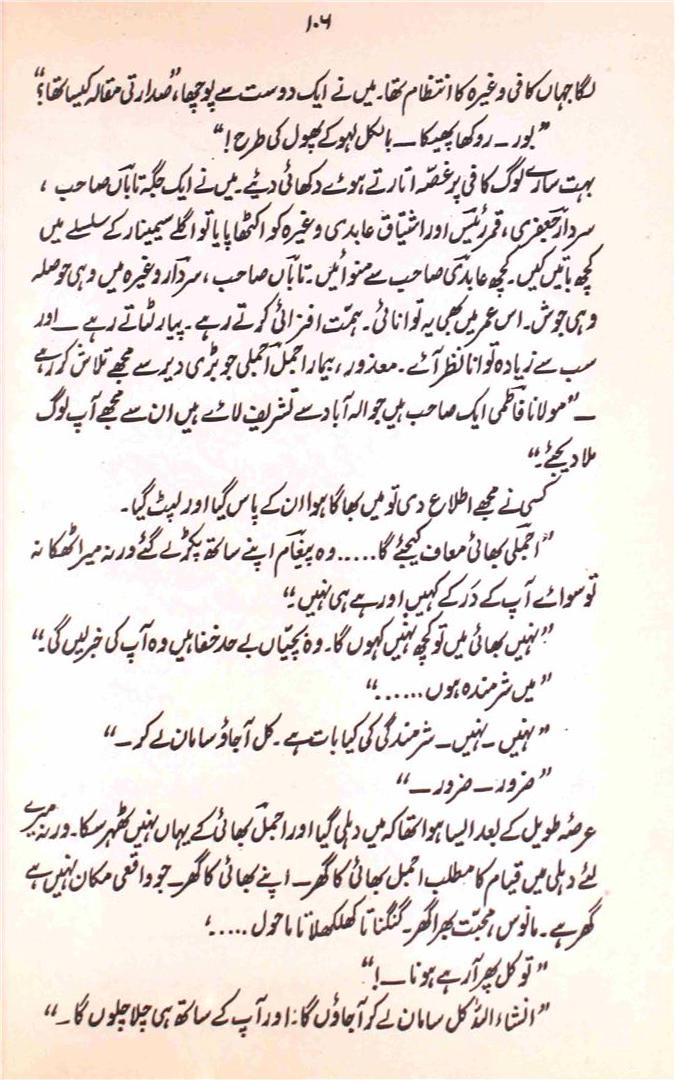 ۱۰۶
لگا جہاں کافی وغیرہ کا انتظام تھا۔ میں نے ایک دوست سے پوچھا، ”صدارتی مقالہ کیسا تھا؟“
”بور ـ روکھا پھیکا ـ بالکل لہو کے پھول کی طرح!“
بہت سارے لوگ کافی پر غصّہ اتارتے ہوئے دکھائی دیئے۔ میں نے ایک جگہ تاباں صاحب،
سردار جعفری، قمر رئیس اور اشتیاق عابدی وغیرہ کو اکٹھا پایا تو اگلے سیمینار کے سلسلے میں
کچھ باتیں کیں۔ کچھ عابدی صاحب سے منوائیں۔ تاباں صاحب، سردار وغیرہ میں وہی حوصلہ
وہی جوش۔ اس عمر میں بھی یہ توانائی۔ ہمّت افزائی کرتے رہے۔ پیار لٹاتے رہے ـ اور
سب سے زیادہ توانا نظر آئے۔ معذور، بیمار اجمل اجملی جو بڑی دیر سے مجھے تلاش کر رہے
ـ ”مولانا فاطمی ایک صاحب ہیں جو الہ آباد سے تشریف لائے ہیں ان سے مجھے آپ لوگ
ملا دیجئے۔“
کسی نے مجھے اطلاع دی تو میں بھاگا ہوا ان کے پاس گیا اور لپٹ گیا۔
”اجملی بھائی معاف کیجئے گا..... وہ پیغام اپنے ساتھ پکڑ لے گئے ورنہ میرا ٹھکانہ
تو سوائے آپ کے دَر کے کہیں اور ہے ہی نہیں۔“
”نہیں بھائی میں تو کچھ نہیں کہوں گا۔ وہ بچیّاں بے حد خفا ہیں وہ آپ کی خبر لیں گی۔“
”میں شرمندہ ہوں ......“
”نہیں ـ نہیں ـ شرمندگی کی کیا بات ہے۔ کل آجاؤ سامان لے کر ـ“
”ضرور ـ ضرور ـ“
عرصۂ طویل کے بعد ایسا ہوا تھا کہ میں دہلی گیا اور اجمل بھائی کے یہاں نہیں ٹھہر سکا۔ ورنہ میرے
لئے دہلی میں قیام کا مطلب اجمل بھائی کا گھر ـ اپنے بھائی کا گھر ـ جو واقعی مکان نہیں ہے
گھر ہے۔ مانوس، محبّت بھرا گھر۔ گنگناتا کھلکھلاتا ماحول .....‘
”تو کل پھر آ رہے ہو نا ـ!“
”انشاء اللہ کل سامان لے کر آجاؤں گا: اور آپ کے ساتھ ہی چلا چلوں گا۔“